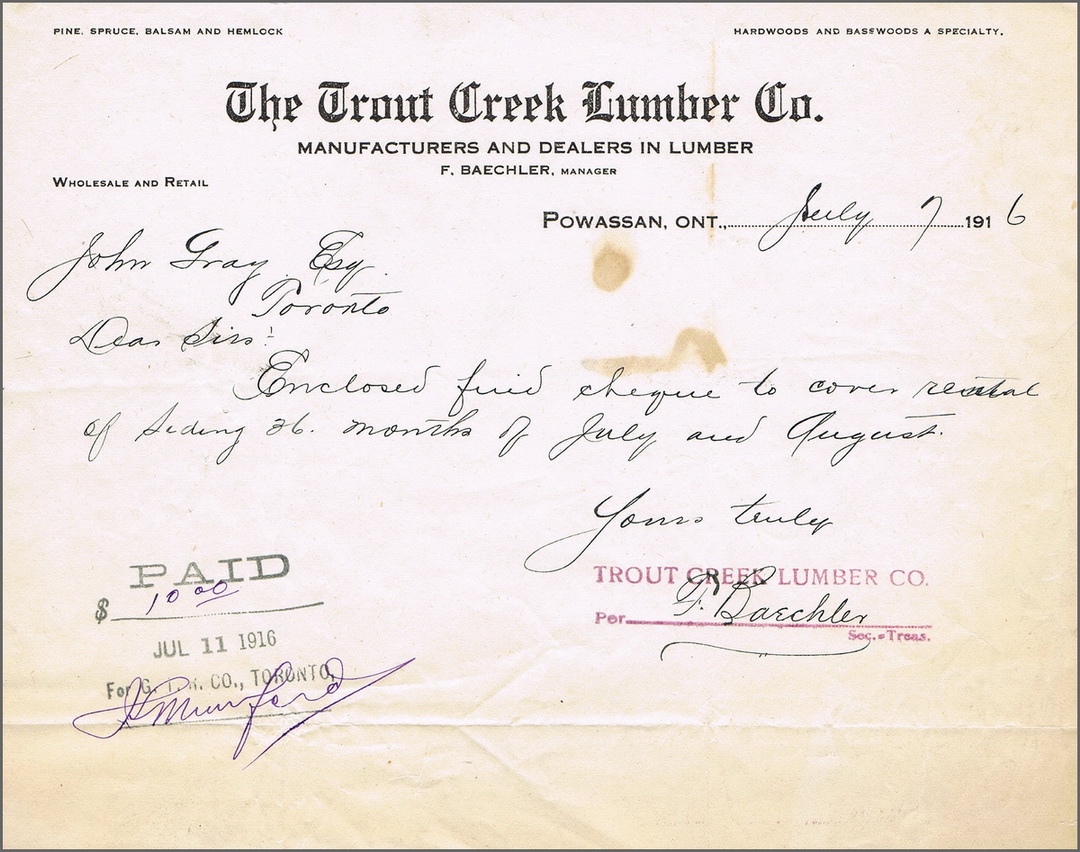 PINE, SPRUCE, BALSAM AND HEMLOCK
HARDWOODS AND BASSWOODS A SPECIALTY.
The Trout Creek Lumber Co.
MANUFACTURERS AND DEALERS IN LUMBER
F. BAECHLER, MANAGER
WHOLESALE AND RETAIL
POWASSAN, ONT., July 7 1916
John Gray Esq.
Toronto
Dear Sirs:
Enclosed find cheque to cover rental
of siding 26. months of July and August.
Yours truly
TROUT CREEK LUMBER CO.
Per F. Baechler
Sec.=Treas.
PAID
$ 10 00
JUL 11 1916
For G. T. R. CO., TORONTO,